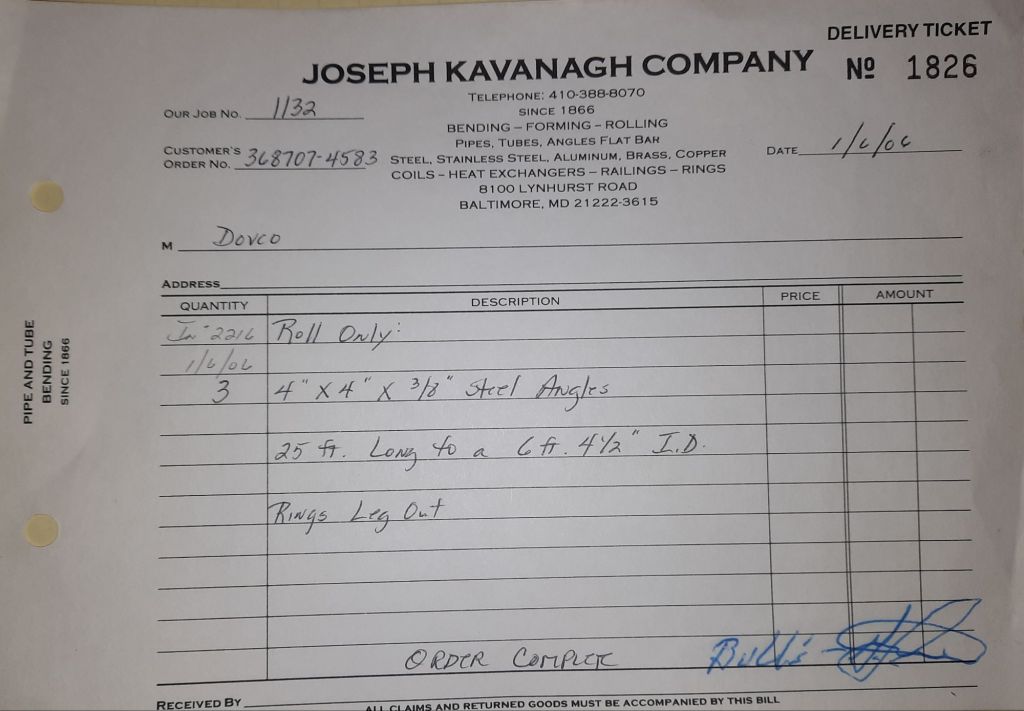 DELIVERY TICKET
JOSEPH KAVANAGH COMPANY
Nº 1826
TELEPHONE: 410-388-8070
SINCE 1866
BENDING – FORMING – ROLLING
PIPES, TUBES, ANGLES FLAT BAR
STEEL, STAINLESS STEEL, ALUMINUM, BRASS, COPPER
COILS – HEAT EXCHANGERS – RAILINGS – RINGS
8100 LYNHURST ROAD
BALTIMORE, MD 21222-3615
OUR JOB NO. 1132
CUSTOMER'S
ORDER NO. 368707-4583
DATE 1/6/06
M Dovco
ADDRESS
QUANTITY DESCRIPTION PRICE AMOUNT
2216 Roll Only:
1/6/06
3 4" X 4" X 3/8" Steel Angles
25 ft. Long to a 6 ft. 4 1/2" I.D.
Rings Leg Out
ORDER COMPLETE
RECEIVED BY
ALL CLAIMS AND RETURNED GOODS MUST BE ACCOMPANIED BY THIS BILL
PIPE AND TUBE
BENDING
SINCE 1866